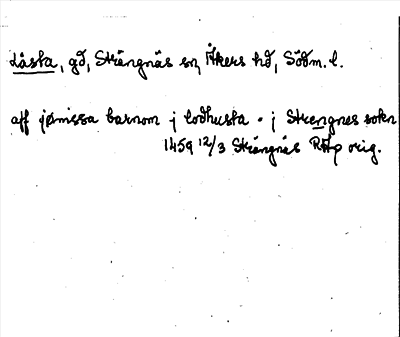 Låsta, gd, Strängnäs sn, Åkers hd, Södm. l.
aff jønissa barnom j lodhusta . j Strengnes sokn
1459 12/3 Strängnäs RAp orig.